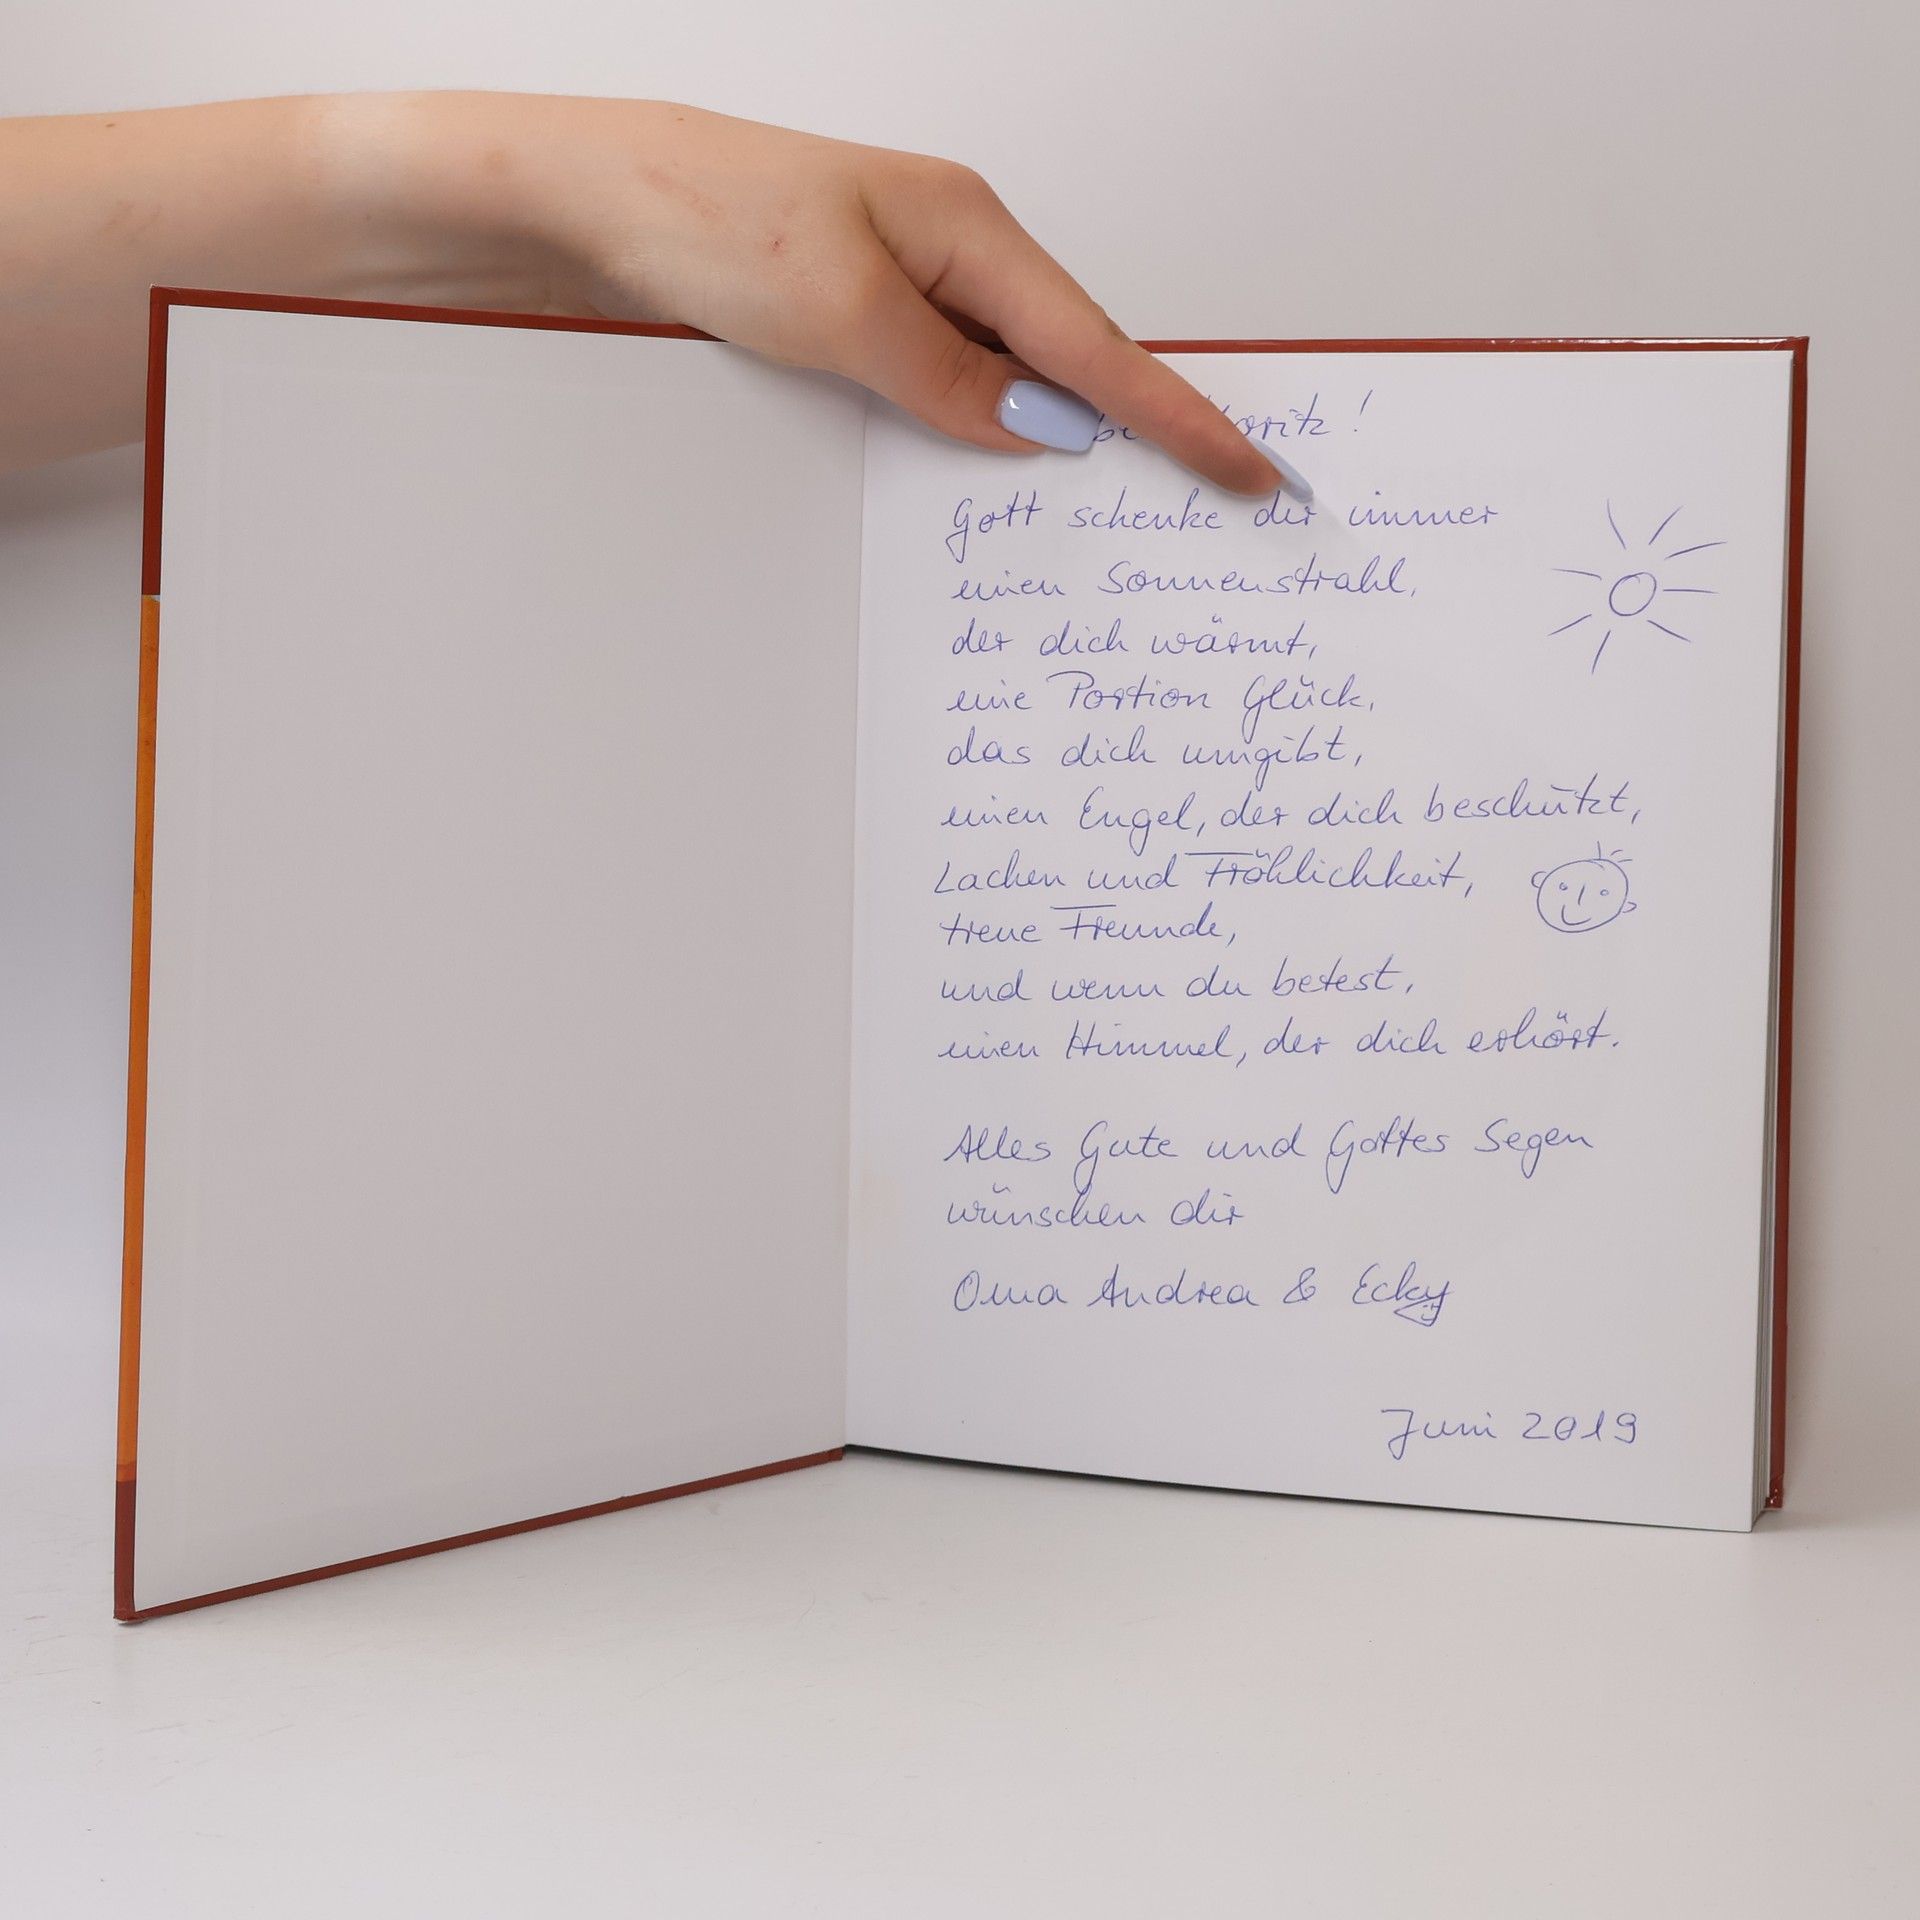 Moritz!
Gott schenke dir immer
einen Sonnenstrahl,
der dich wärmt,
eine Portion Glück,
das dich umgibt,
einen Engel, der dich beschützt,
Lachen und Fröhlichkeit,
treue Freunde,
und wenn du betest,
einen Himmel, der dich erhört.
Alles Gute und Gottes Segen
wünschen dir
Oma Andrea & Ecky
Juni 2019